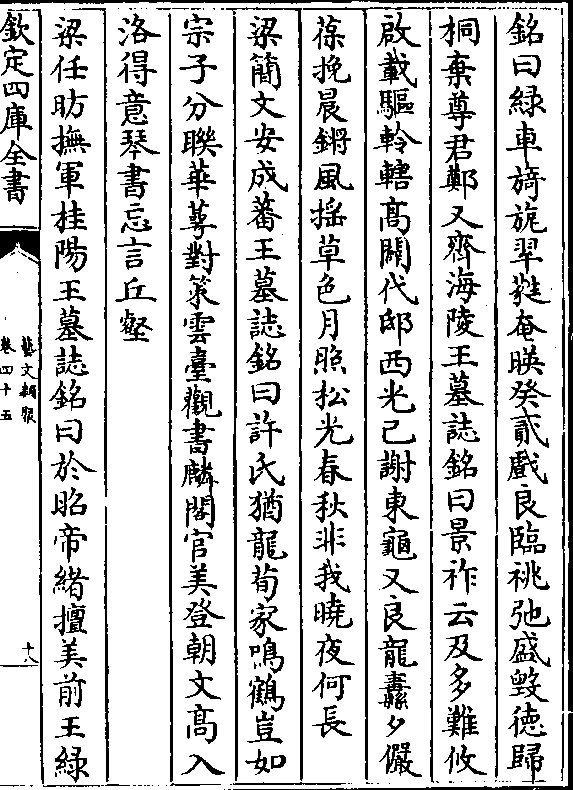 銘曰綠車旖旎翠㲯奄暎癸貳戲良臨祧弛盛毀德歸
桐棄尊君鄭又齊海陵王墓誌銘曰景祚云及多難攸
啟載驅軨轄高闢代邸西光已謝東龜又良龍纛夕儼
葆挽晨鏘風搖草色月照松光春秋非我曉夜何長
梁簡文安成蕃王墓誌銘曰許氏猶龍荀家鳴鶴豈如
宗子分聯華萼對策雲臺觀書麟閣官美登朝文高入
洛得意琴書忘言丘壑
梁任昉撫軍桂陽王墓誌銘曰於昭帝緒擅美前王綠
欽定四庫全書
藝文類聚
卷四十五
十八